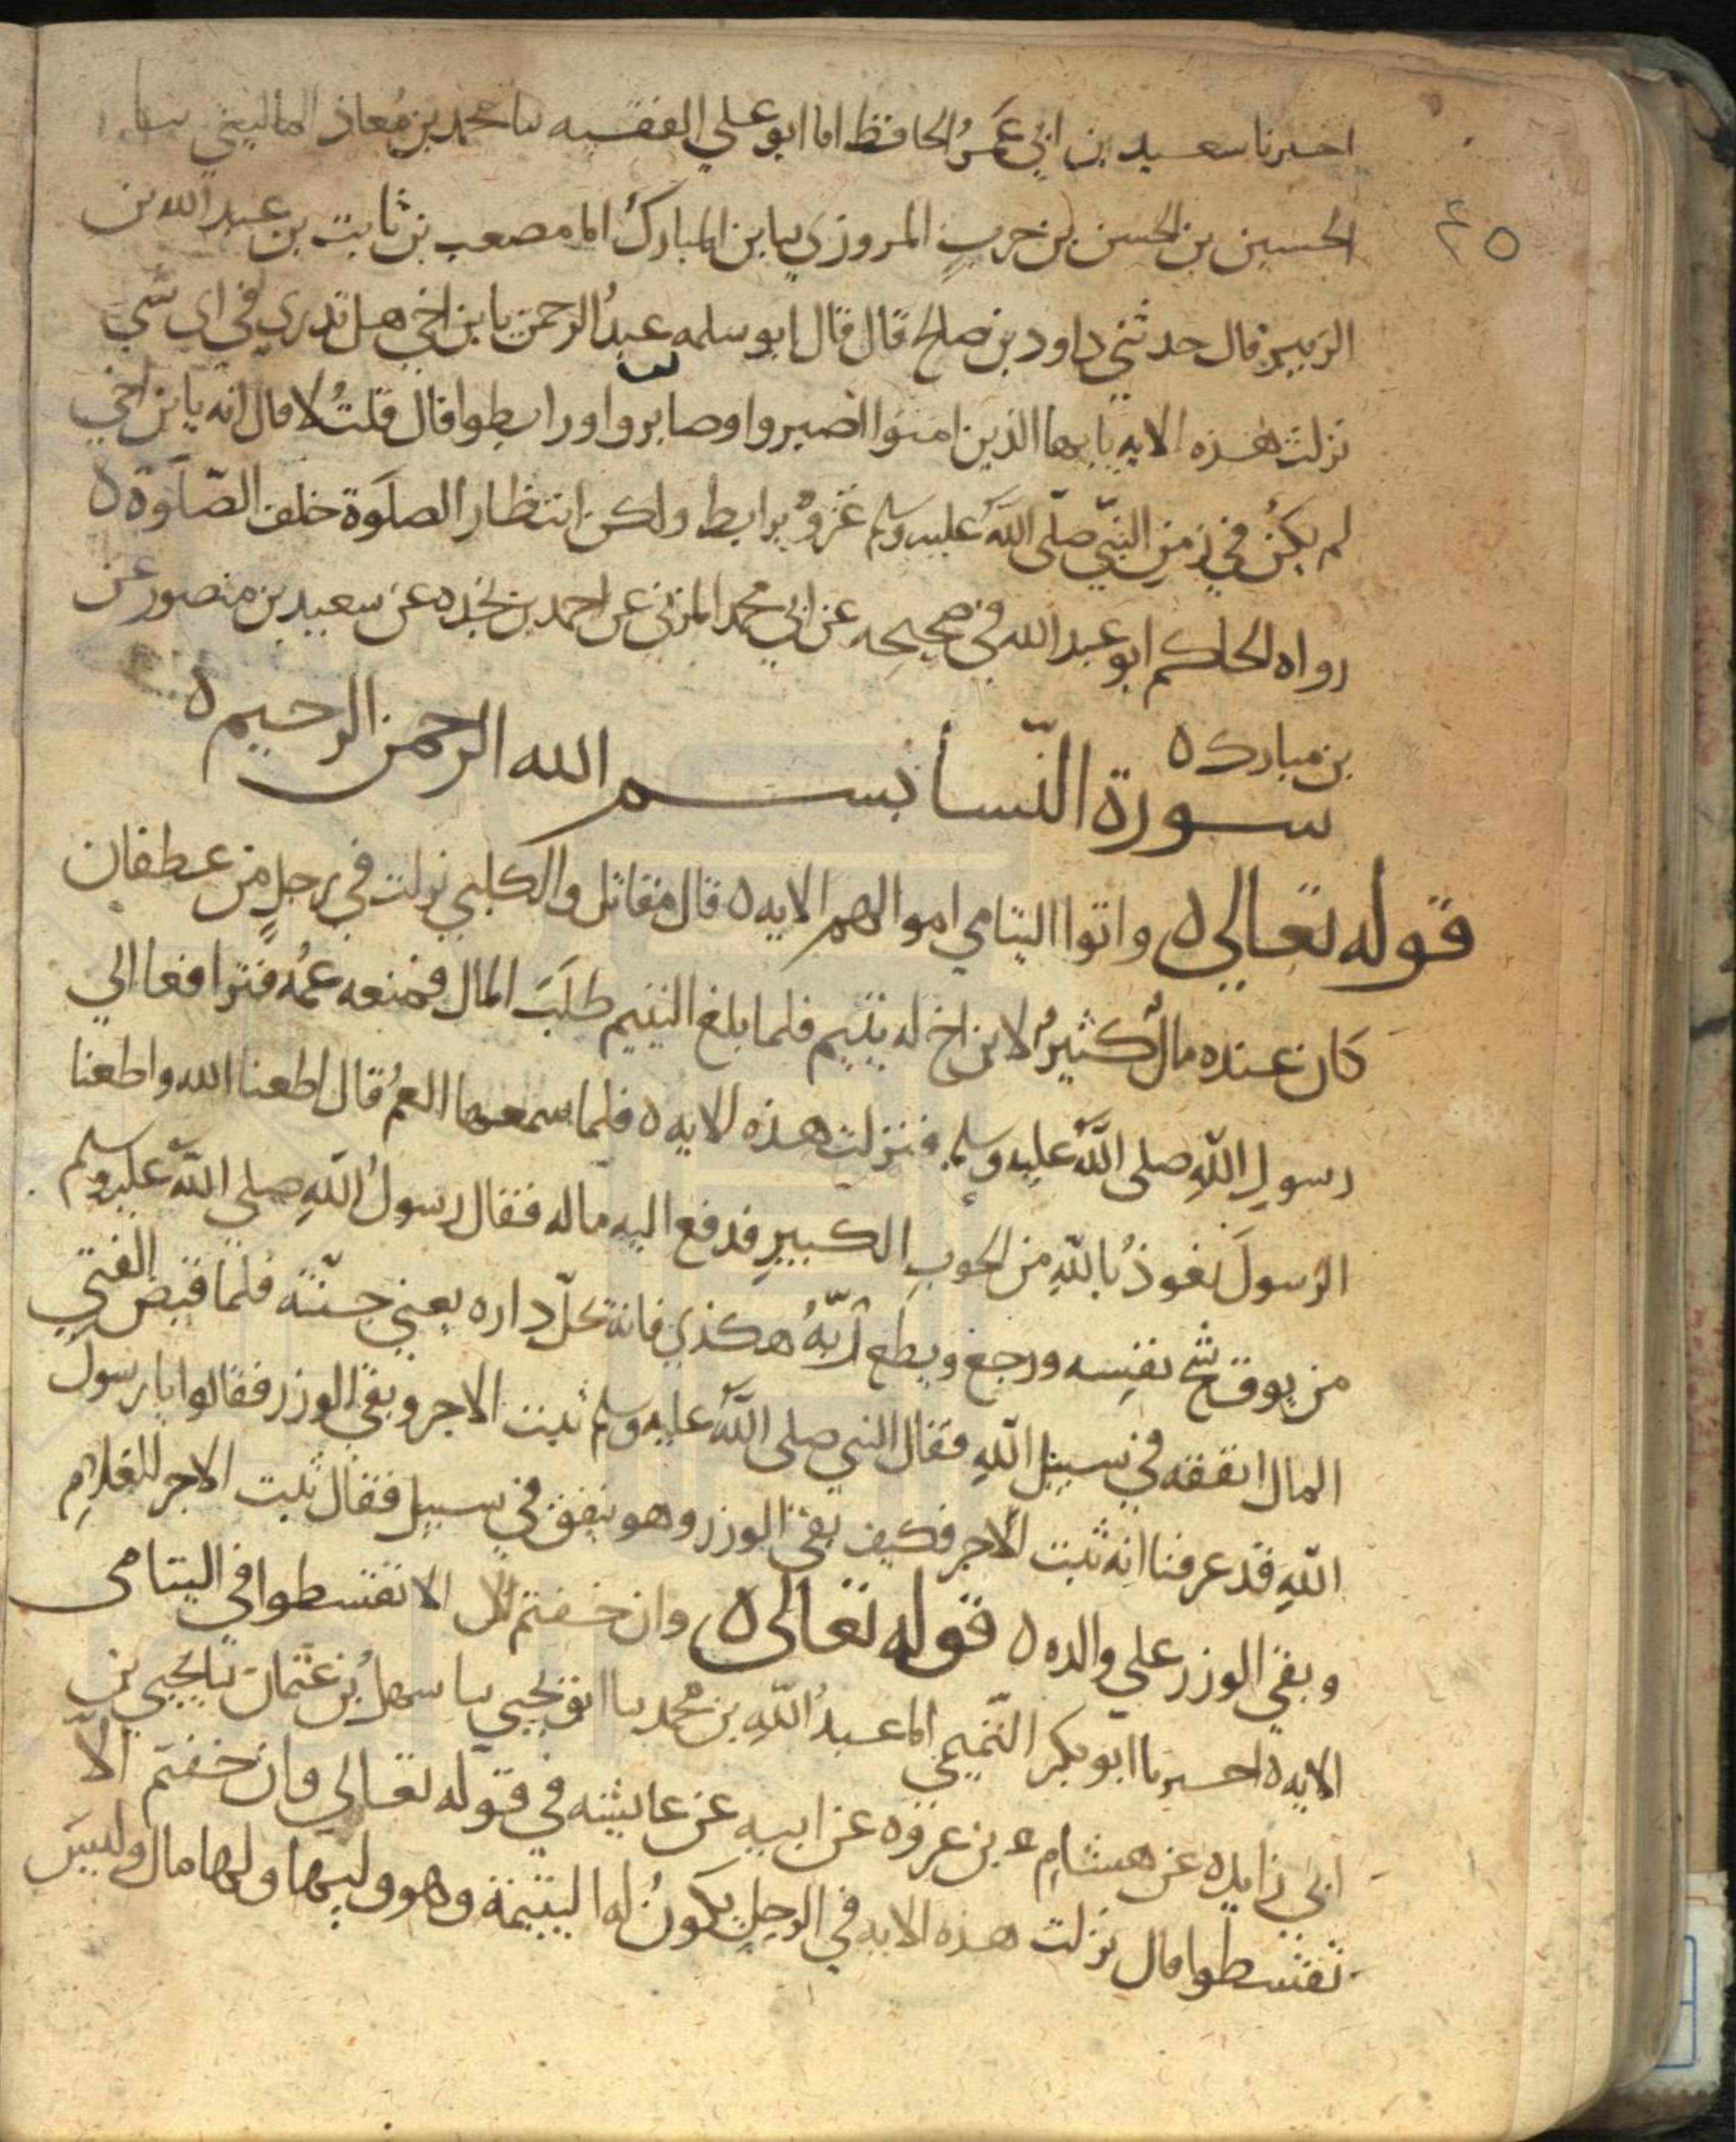 اخبرنا سعيد بن ابي عمرو الحافظ انا ابو علي الفقيه نا محمد بن معاذ الماليني نا
الحسين بن الحسن بن حرب المروزي نا بن المبارك انا مصعب بن ثابت بن عبد الله بن
الزبير قال حدثني داود بن صلح قال قال ابو سلمه عبد الرحمن يا بن اخي هل تدري في اي شي
نزلت هذه الايه يا يها الذين امنوا اصبروا وصابروا ورابطوا قال قلت لا قال انه يا بن اخي
لم يكن في زمن النبي صلى الله عليه وسلم غزو يرابط ولكن انتظار الصلوة خلف الصلوة ه
رواه الحاكم ابو عبد الله في صحيحه عن ابي محمد المزني عن احمد بن نجده عن سعيد بن منصور عن
بن مبارك ه
سورة النسا بسم الله الرحمن الرحيم ه
قوله تعالى ه واتوا اليتامي اموالهم الايه ه قال مقاتل والكلبي نزلت في رجل من عطفان
كان عنده مال كثير لابن اخ له يتيم فلما بلغ اليتيم طلب المال فمنعه عمه فترافعا الي
رسول الله صلى الله عليه وسلم فنزلت هذه الايه ه فلما سمعها العم قال اطعنا الله واطعنا
الرسول نعوذ بالله من الحوب الكبير فدفع اليه ماله فقال رسول الله صلي الله عليه وسلم
من يوق شح نفسه ورجع ويطع ربه هكذي فانه يحل داره يعني جنته فلما قبض الفتي
المال انفقه في سبيل الله فقال النبي صلى الله عليه وسلم ثبت الاجر وبقي الوزر فقالوا يا رسول
الله قد عرفنا انه ثبت الاجر فكيف بقي الوزر وهو ينفق في سبيل فقال ثبت الاجر للغلام
وبقي الوزر علي والده ه قوله تعالى ه وان خفتم الا تقسطوا في اليتامى
الايه ه اخبرنا ابو بكر التميمي انا عبد الله بن محمد نا ابو يحيي نا سهل بن عثمان نا يحيي بن
ابي زايده عن هشام بن عروه عن ابيه عن عايشه في قوله تعالي وان خفتم الا
تقسطوا قال نزلت هذه الايه في الرجل يكون له اليتيمة وهو وليها ولها مال وليس